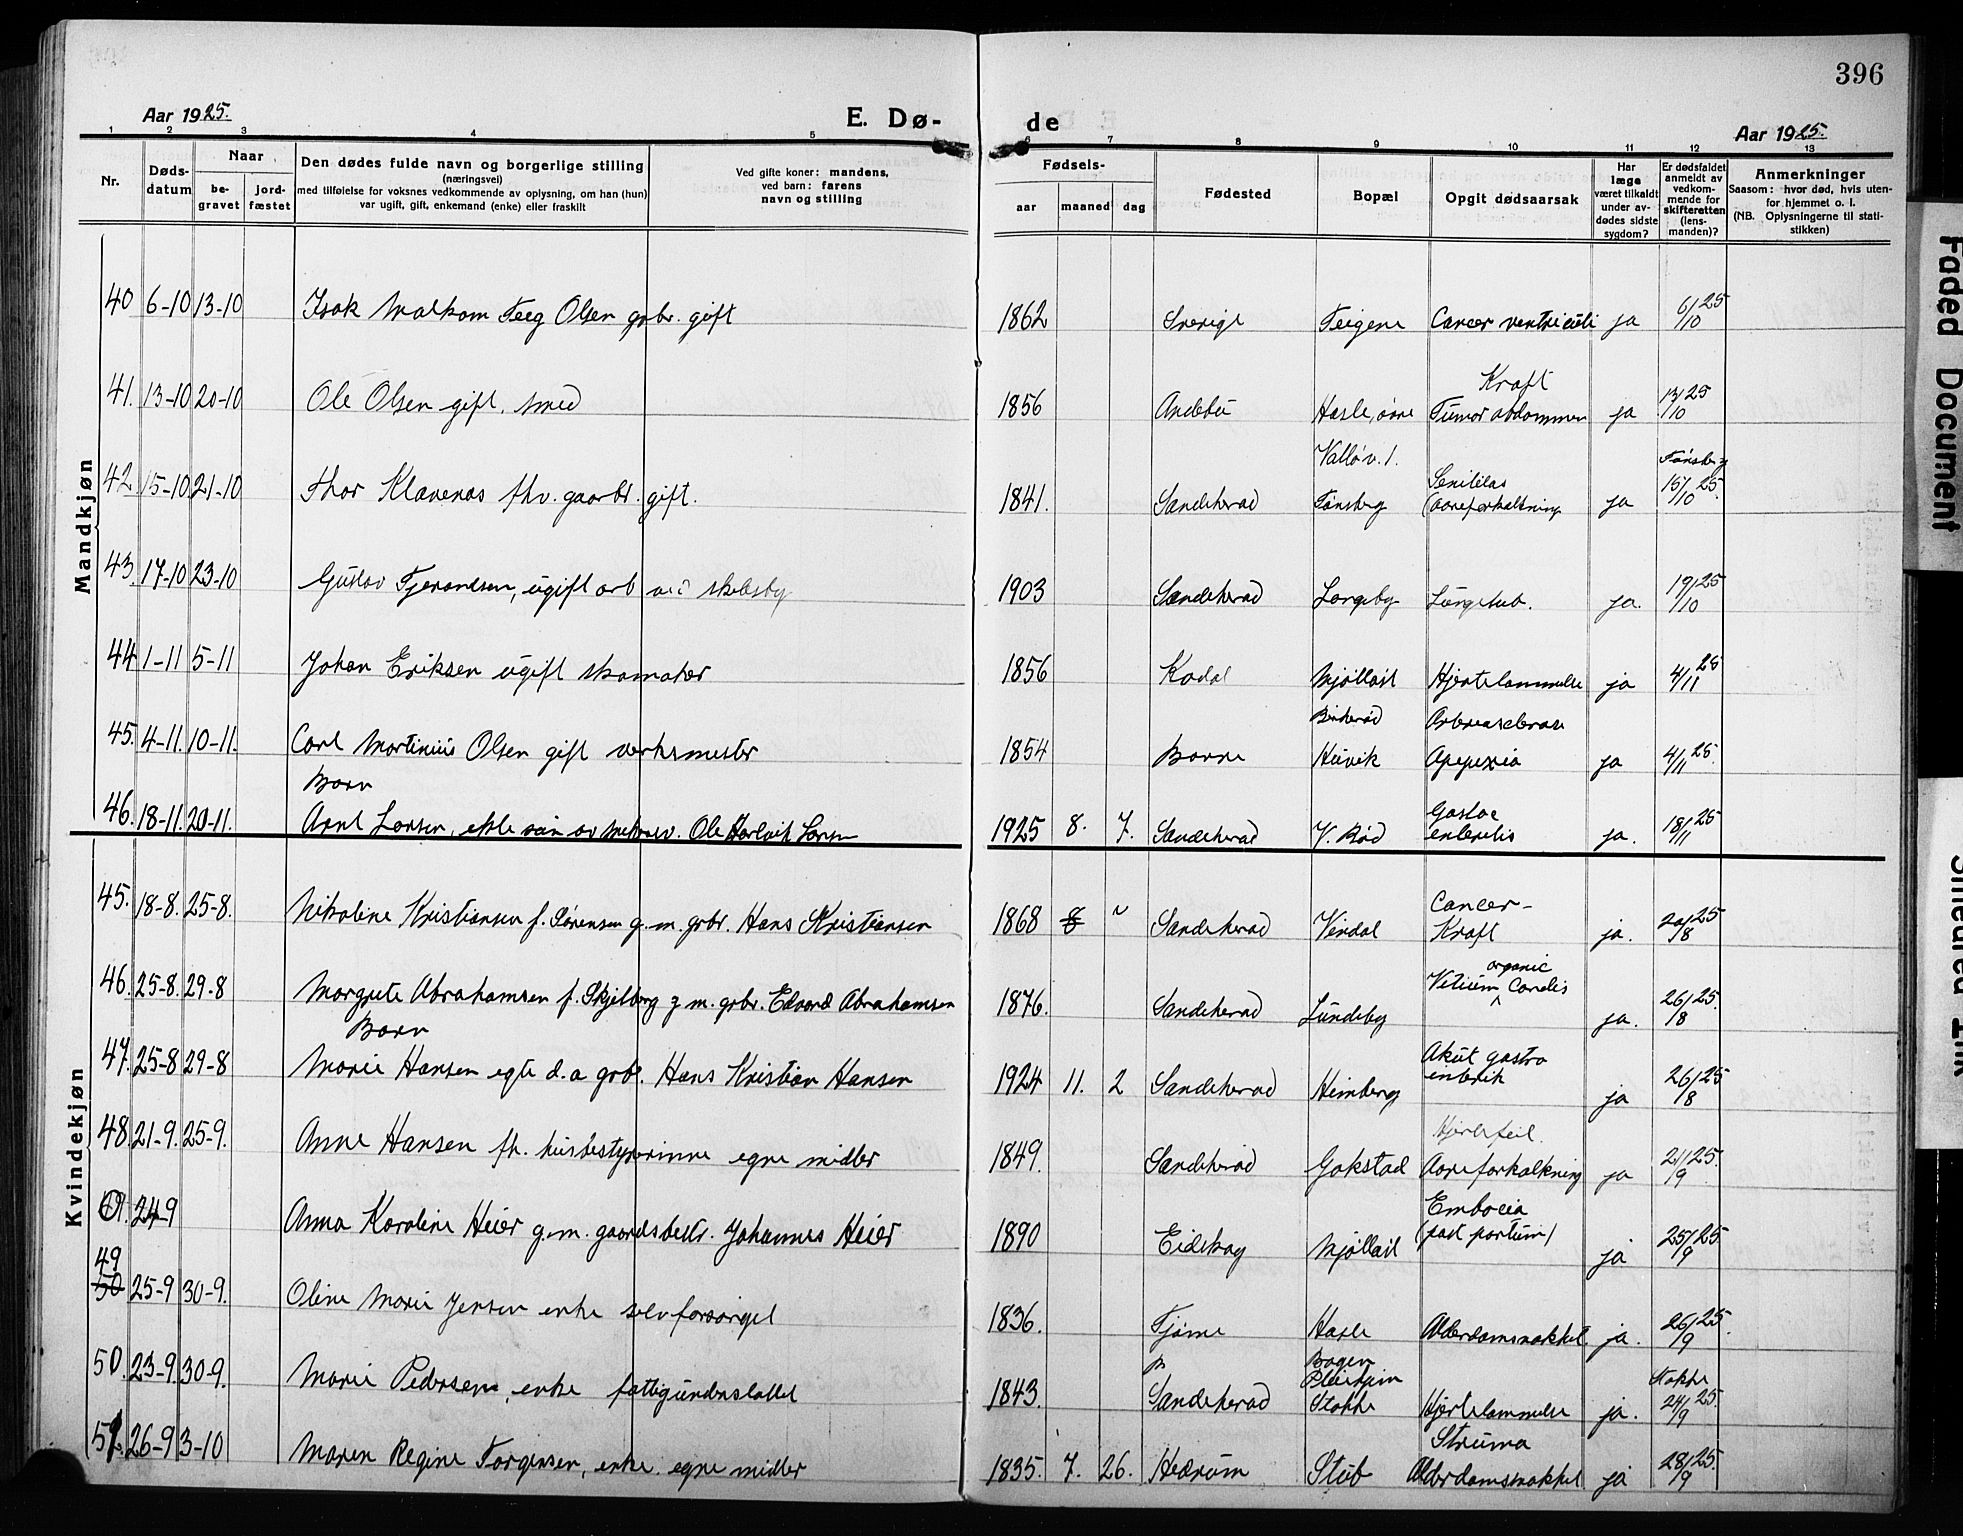 396
Aar 1925.
E. Dø-
de
Aar 1925.
1 2 3 4 5 6 7 8 9 10 11 12 13
Nr.
Døds-
datum
Naar
be-
gravet
jord-
fæstet
Den dødes fulde navn og borgerlige stilling
(næringsvei)
med tilføielse for voksnes vedkommende av oplysning, om han (hun)
var ugift, gift, enkemand (enke) eller fraskilt
Ved gifte koner: mandens,
ved barn: farens
navn og stilling
Fødsels-
aar maaned dag
Fødested
Bopæl
Opgit dødsaarsak
Har
læge
været tilkaldt
under av-
dødes sidste
sygdom?
Er dødsfaldet
anmeldt av
vedkom-
mende for
skifteretten
(lens-
manden)?
Anmerkninger
Saasom: hvor død, hvis uten-
for hjemmet o. l.
(NB. Oplysningerne til stati-
stikken)
Mandkjøn
40 6-10 13-10 Isak Malkom Feeg Olsen gift 1862 Sverige Feigene Cancer ventriculi ja 6/10 25
Kraft
41. 13-10 20-10 Ole Olsen gift, smed 1856 Andebu Hasle, øvre Tumor abdommen ja 13/10 25
Valløv. 1. Tønsberg
42 15-10 21-10 Thor Klavenes fhv. gaarbr. gift. 1841. Sandeherad Tønsberg Senilitas (aareforkalkning ja 15/10 25.
43. 17-10 23-10 Gustav Tjerandsen, ugift arb ved skibsby 1903 Sandeherad Langeby Lungetub. ja. 19/10 25
44 1-11 5-11 Johan Eriksen ugift skomaker 1856 Kodal Mjølløst Hjertelammelse ja 4/11 25
45. 4-11. 10-11. Carl Martinius Olsen gift verksmester 1854 Borre Huvik Apopexia ja 4/11 25.
Barn
46. 18-11. 20-11. Arnt Larsen, ekte søn av Ole Hartvik Larsen 1925 8. 7. Sandeherad V. Rød Gastoe enteritis ja. 18/11 25
Kvindekjøn
45. 18-8. 25-8. Nikoline Kristiansen f. Sørensen g. m. grbr. Hans Kristiansen 1868 8 Sandeherad Vindal Cancer- Kraft ja. 20/8 25
46. 25-8. 29-8 Margrete Abrahamsen f. Skjelberg g m. grbr. Edvard Abrahamsen 1876. Sandeherad Lundeby Vitium organic Cordis ja. 26/8 25.
Barn
47. 25-8 29-8 Marie Hansen egte d. a grbr. Hans Kristian Hansen 1924 11. 2 Sandeherad Himberg Akut gastro enterik ja 26/8 25
Hjertefeil.
48. 21-9. 25-9. Anne Hansen fh. husbestyrerinne egne midler 1849. Sandeherad Gokstad Aareforkalkning ja 21/9 25.
49. 24-9 Anna Karoline Heier g. m. gaardsbestr. Johannes Heier 1890 Eidskog Mjølløst Embolia (post portum) ja 25/9 25.
49
50 25-9 30-9. Oline Marie Jensen enke selvforsørget 1836. Tjøme Hasle Alderdomsvakket ja. 26/9 25.
Bogen
Pleiehjem Stokke
50. 23-9. 30-9. Marie Pedersen, enke fattigunderstøttet 1843. Sandeherad Stokke Hjertelammelse ja. 24/9 25.
Struma
51. 26-9 3-10 Maren Regine Torgersen, enke. egne midler 1835. 7. 26. Hedrum Stub Alderdomsvakket ja 28/9 25.
Faded Document
Smeared Ink